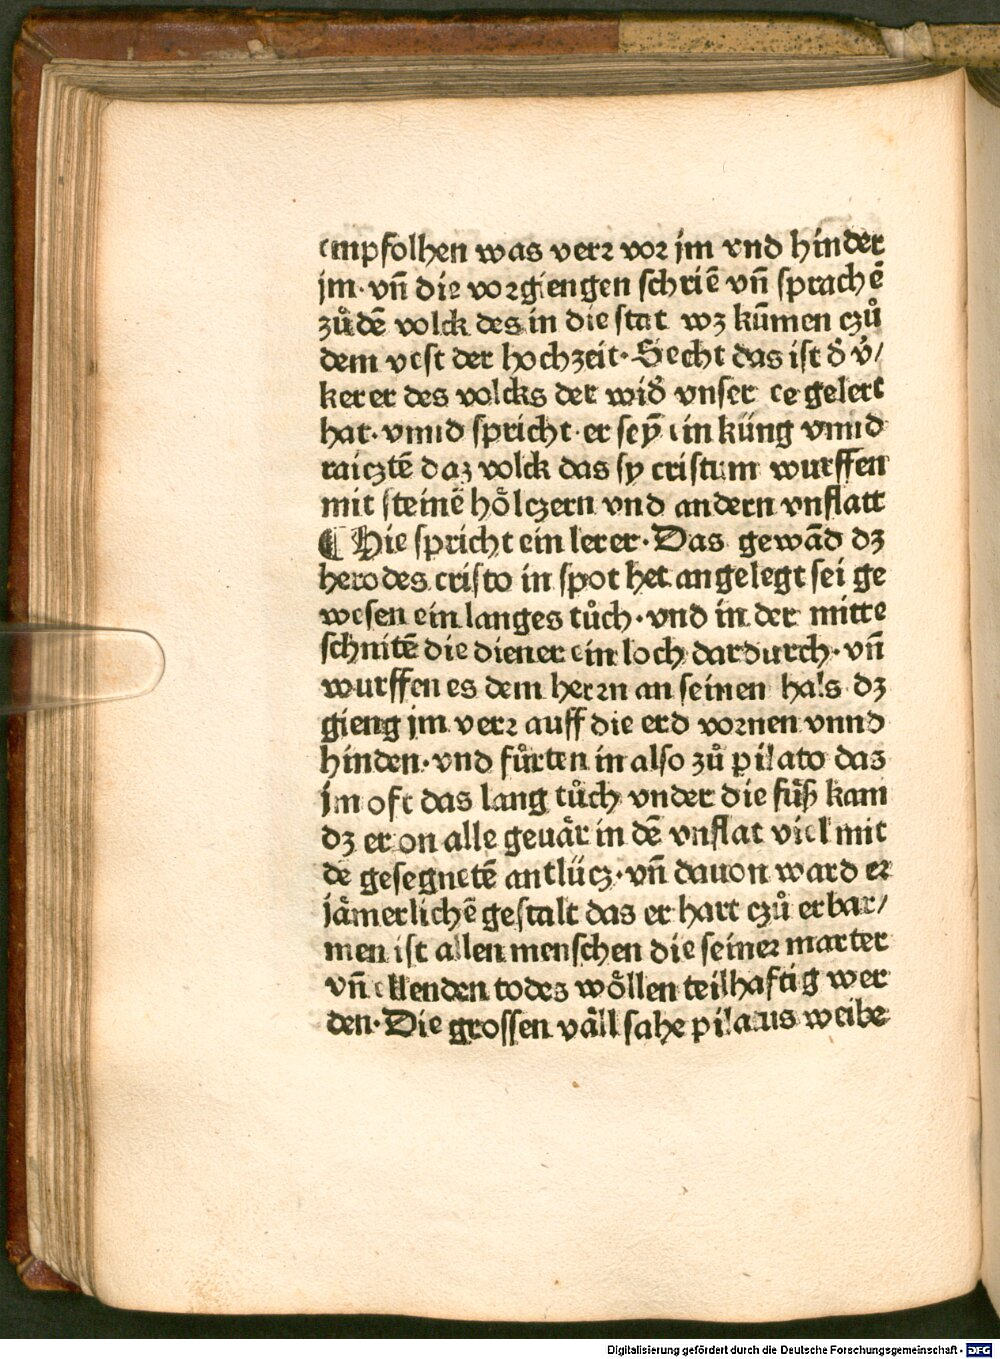 empfolhen was verꝛ voꝛ jm vnd hinder
jm·vn̄ die voꝛgiengen schriē vn̄ sprachē
zů dē volck des in die stat wꝫ kūmen czů
dem vest der hochzeit·Secht das ist d̄ v̊/
kerer des volcks der wid̄ vnser ee gelert
hat·vnnd spricht·er seÿ ein küng vnnd
raicztē daz volck das sy cristum wurffen
mit steinē hoͤlczern vnd andern vnflatt
⸿ Hie spricht ein lerer·Das gewād dꝫ
herodes cristo in spot het angelegt sei ge
wesen ein langes tůch·vnd in der mitte
schnitē die diener ein loch dardurch·vn̄
wurffen es dem herꝛn an seinen hals dꝫ
gieng jm verꝛ auff die erd voꝛnen vnnd
hinden·vnd fůrten in also zů pilato das
jm oft das lang tůch vnder die fuͤß kam
dꝫ er on alle geuaͤr in dē vnflat viel mit
dē gesegnetē antlücz·vn̄ dauon ward eꝛ
jaͤmerlichē gestalt das er hart czů erbar/
men ist allen menschen die seineꝛ marter
vn̄ ellenden todes woͤllen teilhaftig wer
den·Die grossen vaͤll sahe pilatus weibe
Digitalisierung gefördert durch die Deutsche Forschungsgemeinschaft - DFG